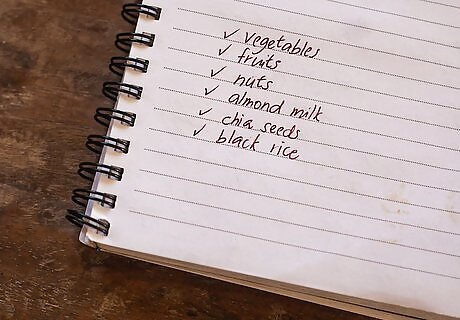 ✓ vegetables
✓ fruits
✓ nuts
✓ almond milk
✓ chia seeds
✓ black rice